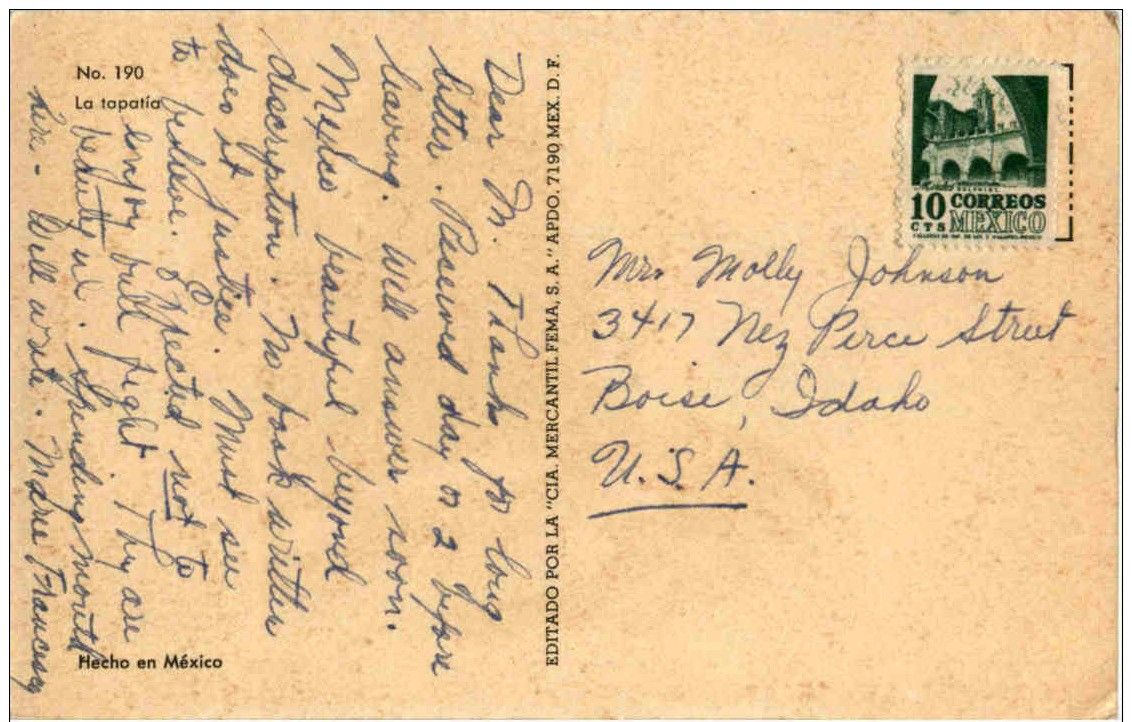 No. 190
La tapatía
Dear M. Thanks for long
letter. Received day or 2 before
leaving. Will answer soon.
Mexico beautiful beyond
discryption. No book written
does it justice. Must see
to believe. Expected not to
enjoy bull fight. They are
beautiful. Spending month
here - Will write. Marie Frances
Hecho en México
EDITADO POR LA "CIA. MERCANTIL FEMA, S. A." APDO. 7190 MEX. D. F.
COLONIAL
10 CORREOS
CTS MEXICO
Mrs Molly Johnson
3417 Nez Perce Street
Boise, Idaho
U.S.A.